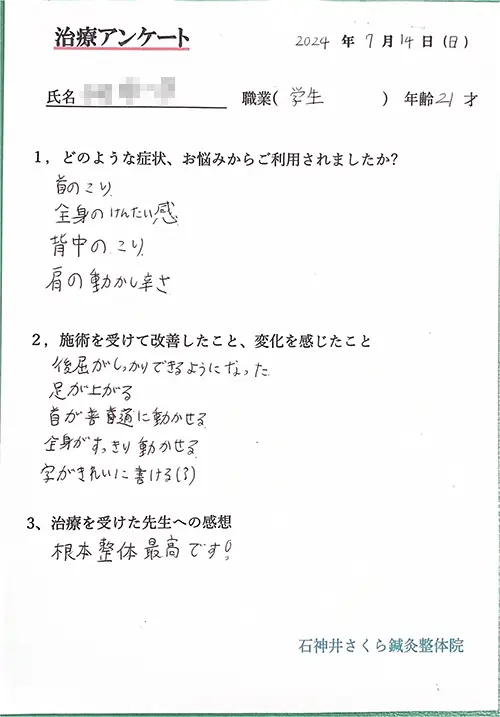 治療アンケート
2024 年 7 月 14 日 (日)
氏名 職業( 学生 ) 年齢 21 才
1，どのような症状、お悩みからご利用されましたか?
首のこり
全身のけんたい感
背中のこり
肩の動かし辛さ
2，施術を受けて改善したこと、変化を感じたこと
後屈がしっかりできるようになった
足が上がる
首が普通に動かせる
全身がすっきり動かせる
字がきれいに書ける(?)
3、治療を受けた先生への感想
根本整体最高です!
石神井さくら鍼灸整体院